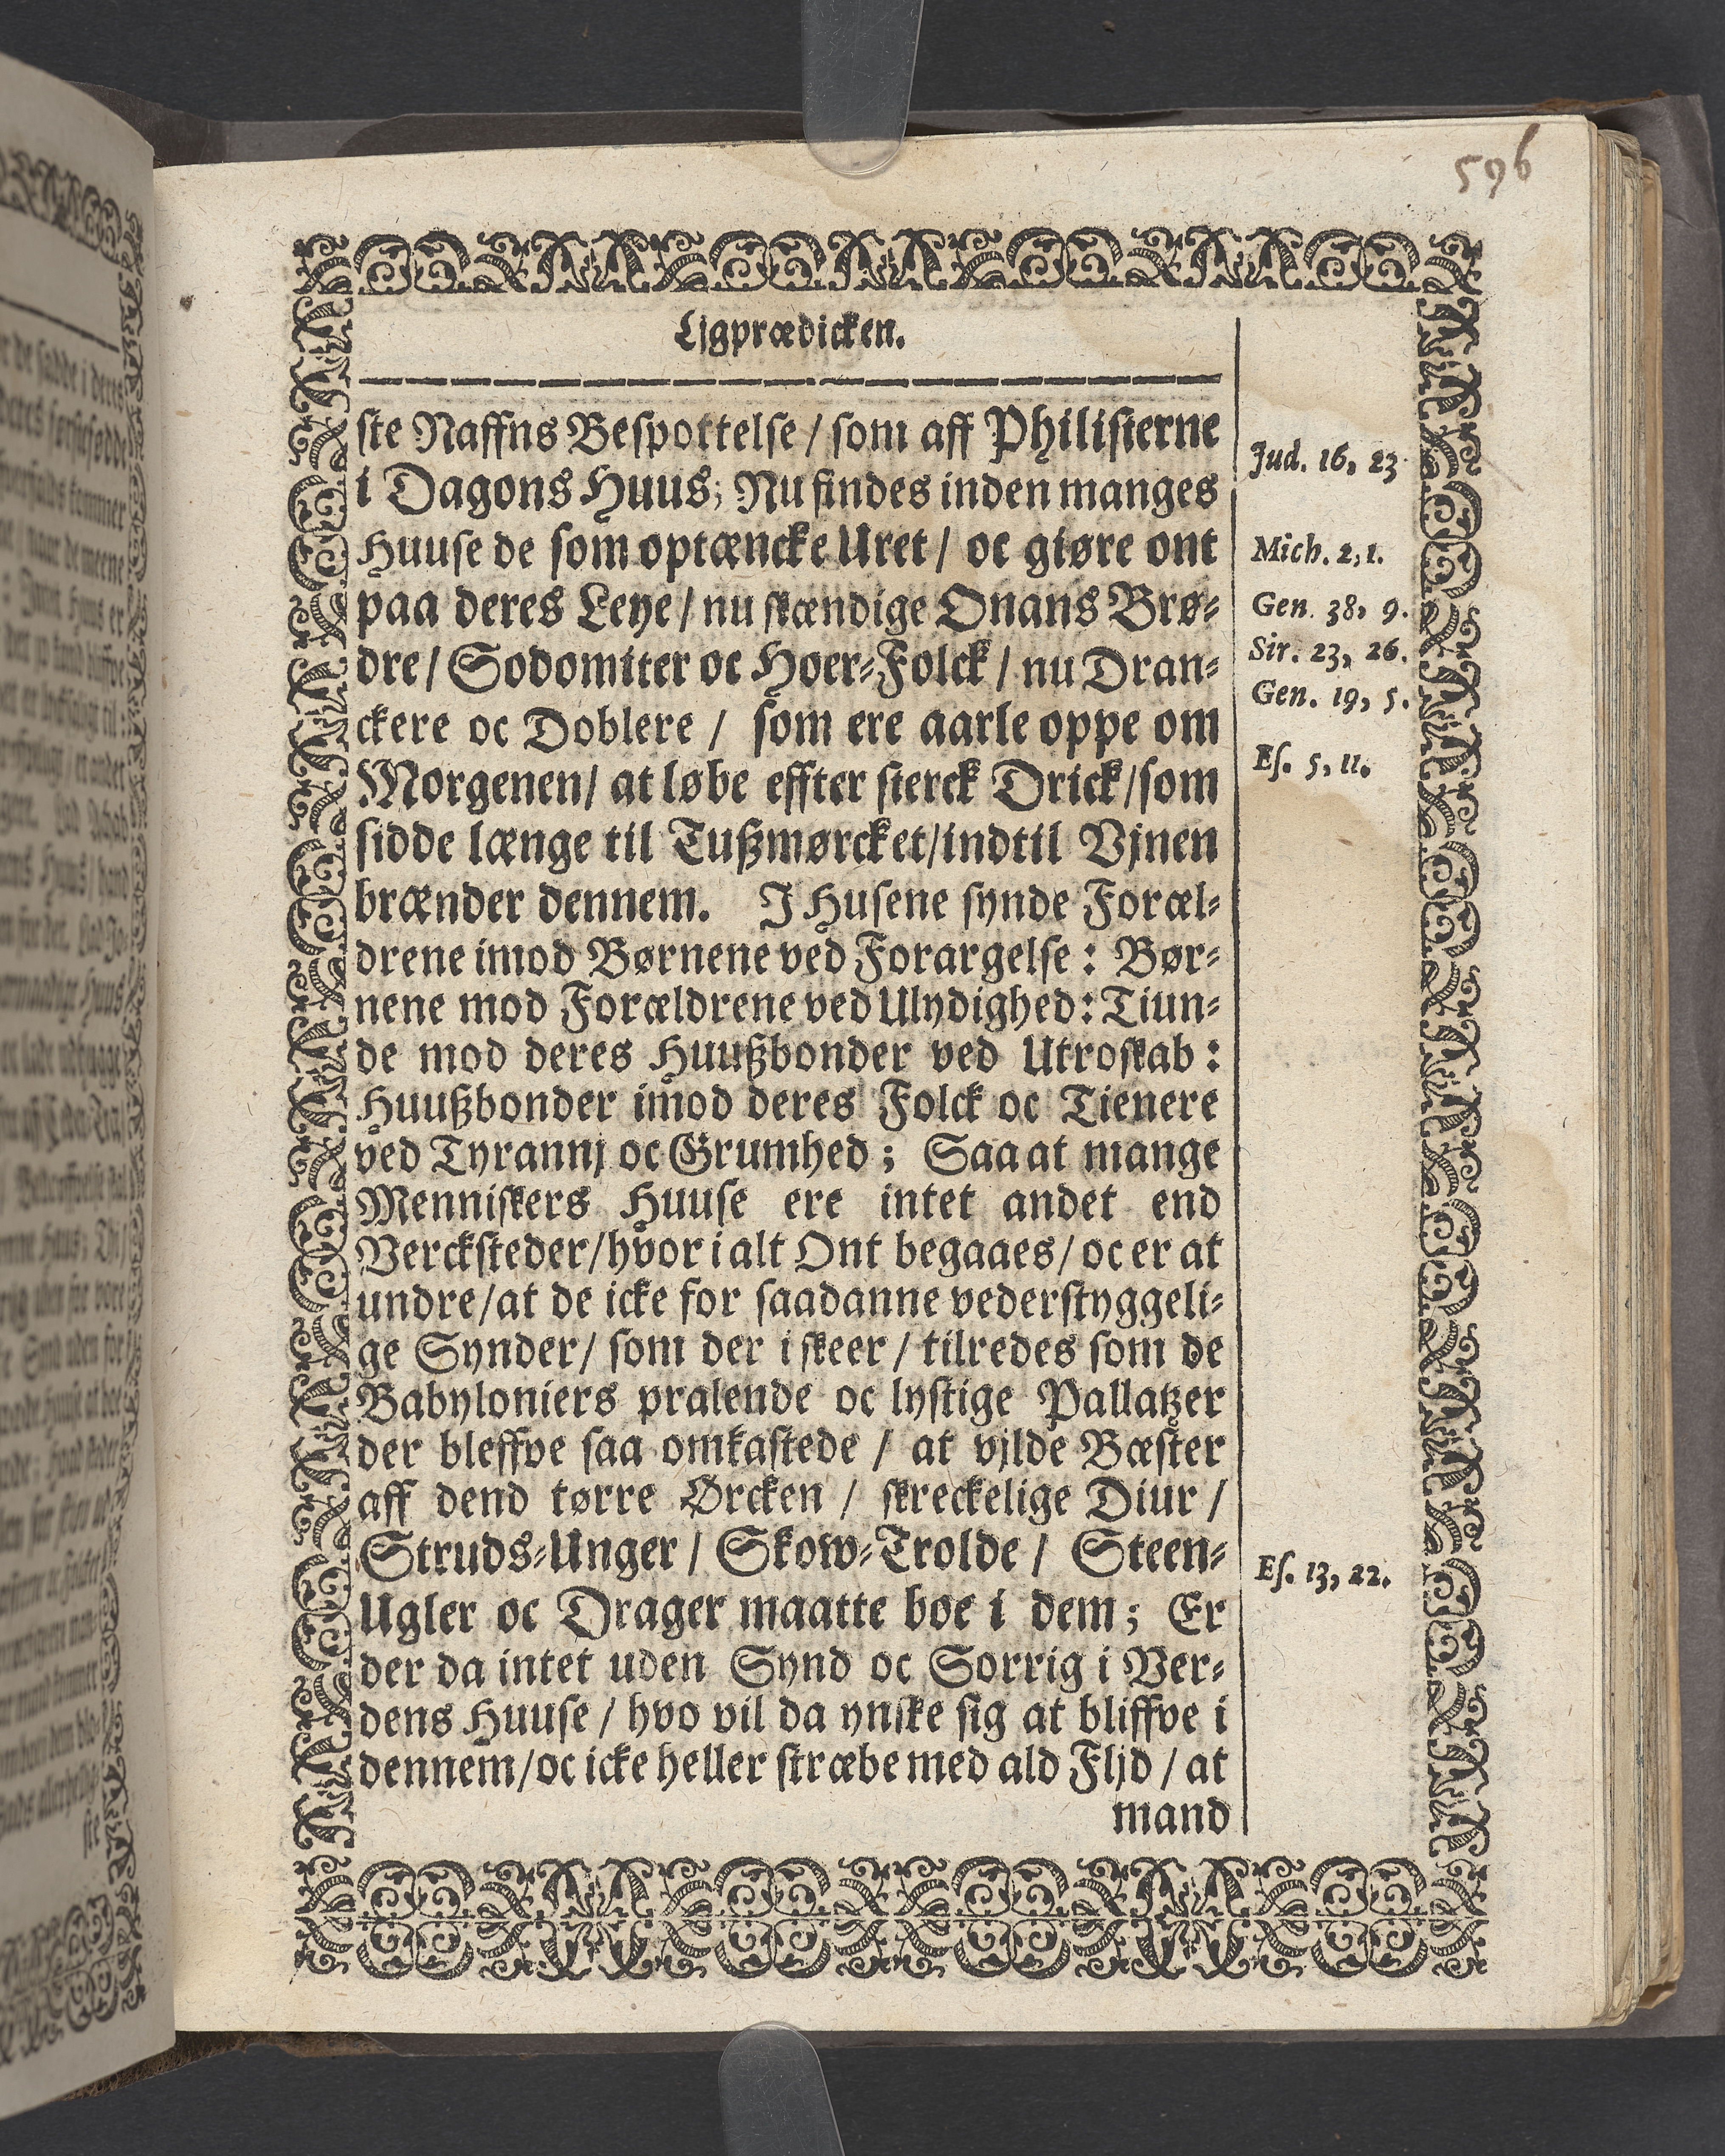 596
Ljgprædicken.
ste Naffns Bespottelse / som aff Philisterne
i Dagons Huus; Nu findes inden manges
Huuse de som optæncke Uret / oc giøre ont
paa deres Leye / nu skændige Onans Brø-
dre / Sodomiter oc Hoer-Folck / nu Dran-
ckere oc Doblere / som ere aarle oppe om
Morgenen / at løbe effter sterck Drick / som
sidde længe til Tußmørcket / indtil Vjnen
brænder dennem. J Husene synde Foræl-
drene imod Børnene ved Forargelse : Bør-
nene mod Forældrene ved Ulydighed : Tiun-
de mod deres Huußbonder ved Utroskab :
Huußbonder imod deres Folck oc Tienere
ved Tyrannj oc Grumhed ; Saa at mange
Menniskers Huuse ere intet andet end
Vercksteder / hvor i alt Ont begaaes / oc er at
undre / at de icke for saadanne vederstyggeli-
ge Synder / som der i skeer / tilredes som de
Babyloniers pralende oc lystige Pallatzer
der bleffve saa omkastede / at vjlde Bæster
aff dend tørre Ørcken / skreckelige Diur /
Struds-Unger / Skow-Trolde / Steen-
Ugler oc Drager maatte boe i dem ; Er
der da intet uden Synd oc Sorrig i Ver-
dens Huuse / hvo vil da ynske sig at bliffve i
dennem / oc icke heller stræbe med ald Fljd / at
mand
Jud. 16, 23
Mich. 2, 1.
Gen. 38, 9.
Sir. 23, 26.
Gen. 19, 5.
Es. 5, 11.
Es. 13, 22.